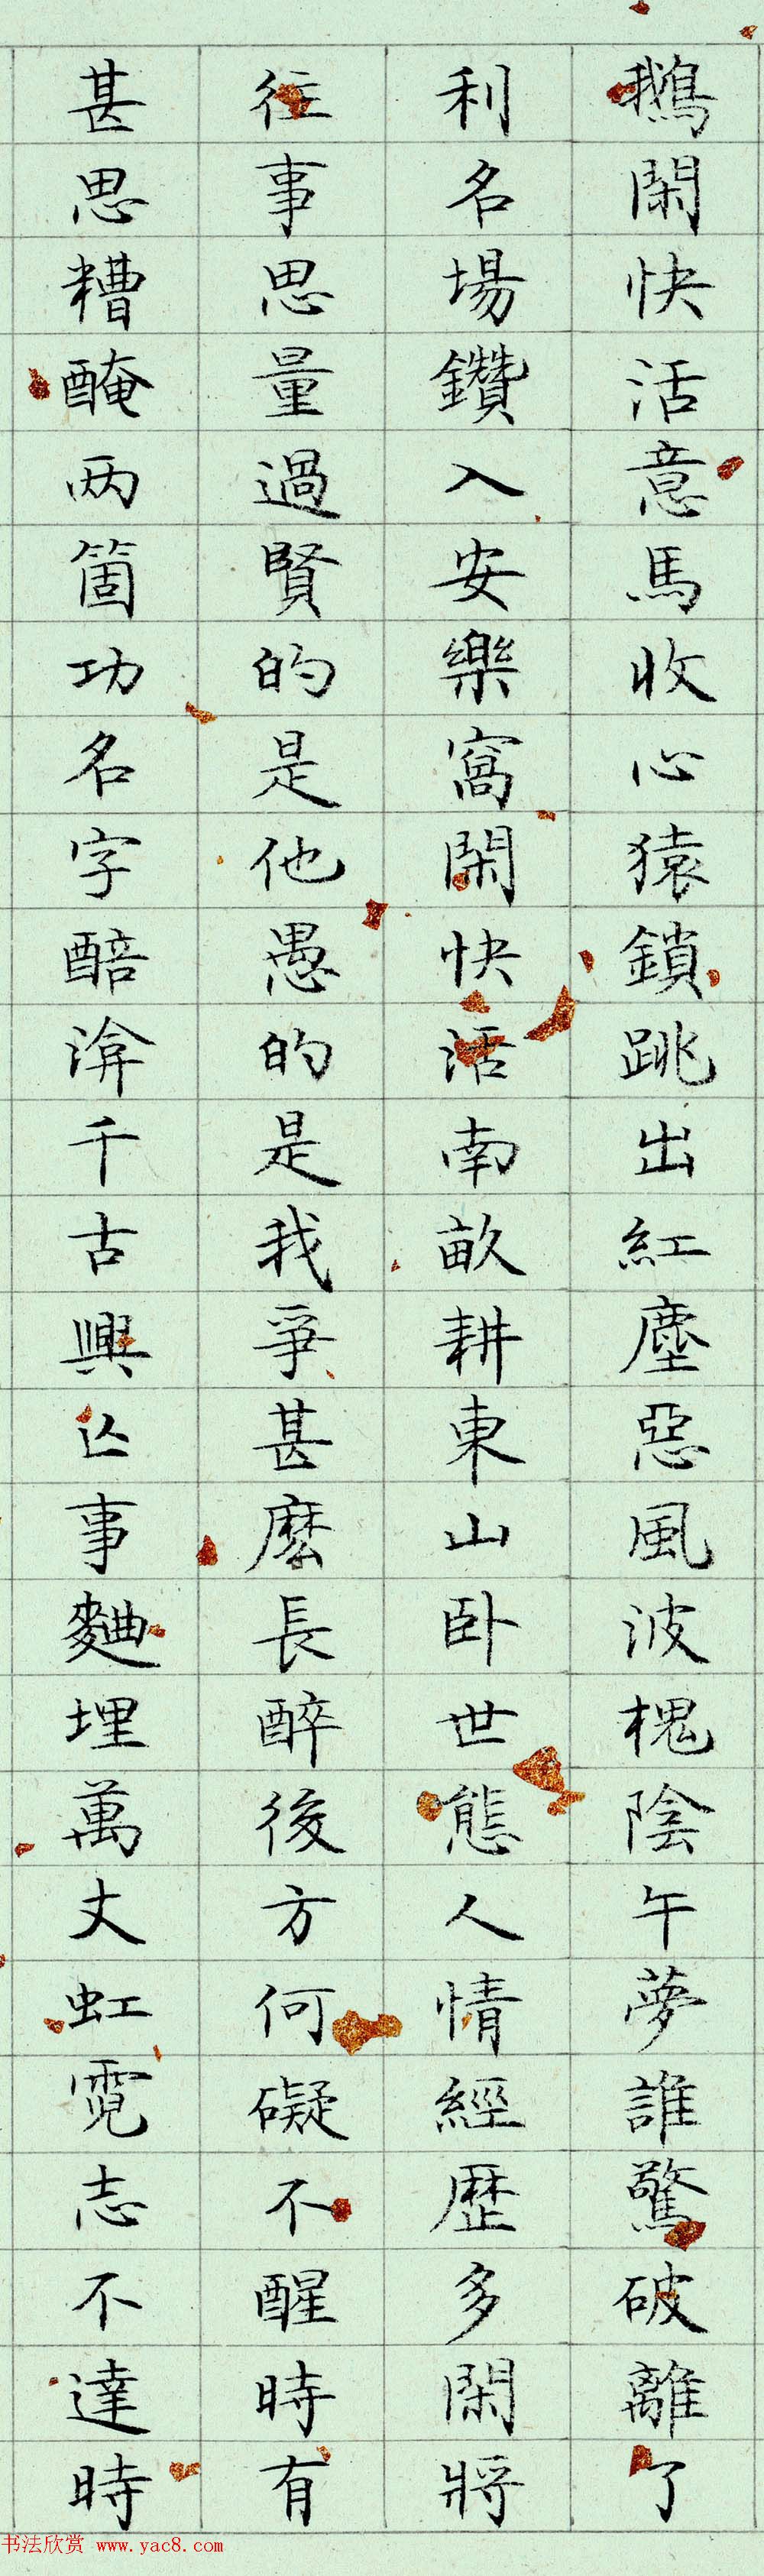 鵝閑快活意馬收心猿鎖跳出紅塵惡風波槐陰午夢誰驚破離了
利名場鑽入安樂窩閑快活南畝耕東山卧世態人情經歷多閑將
往事思量過賢的是他愚的是我爭甚麽長醉後方何礙不醒時有
甚思糟醃两箇功名字醅渰千古興亾事麯埋萬丈虹霓志不達時
书法欣赏 www.yac8.com